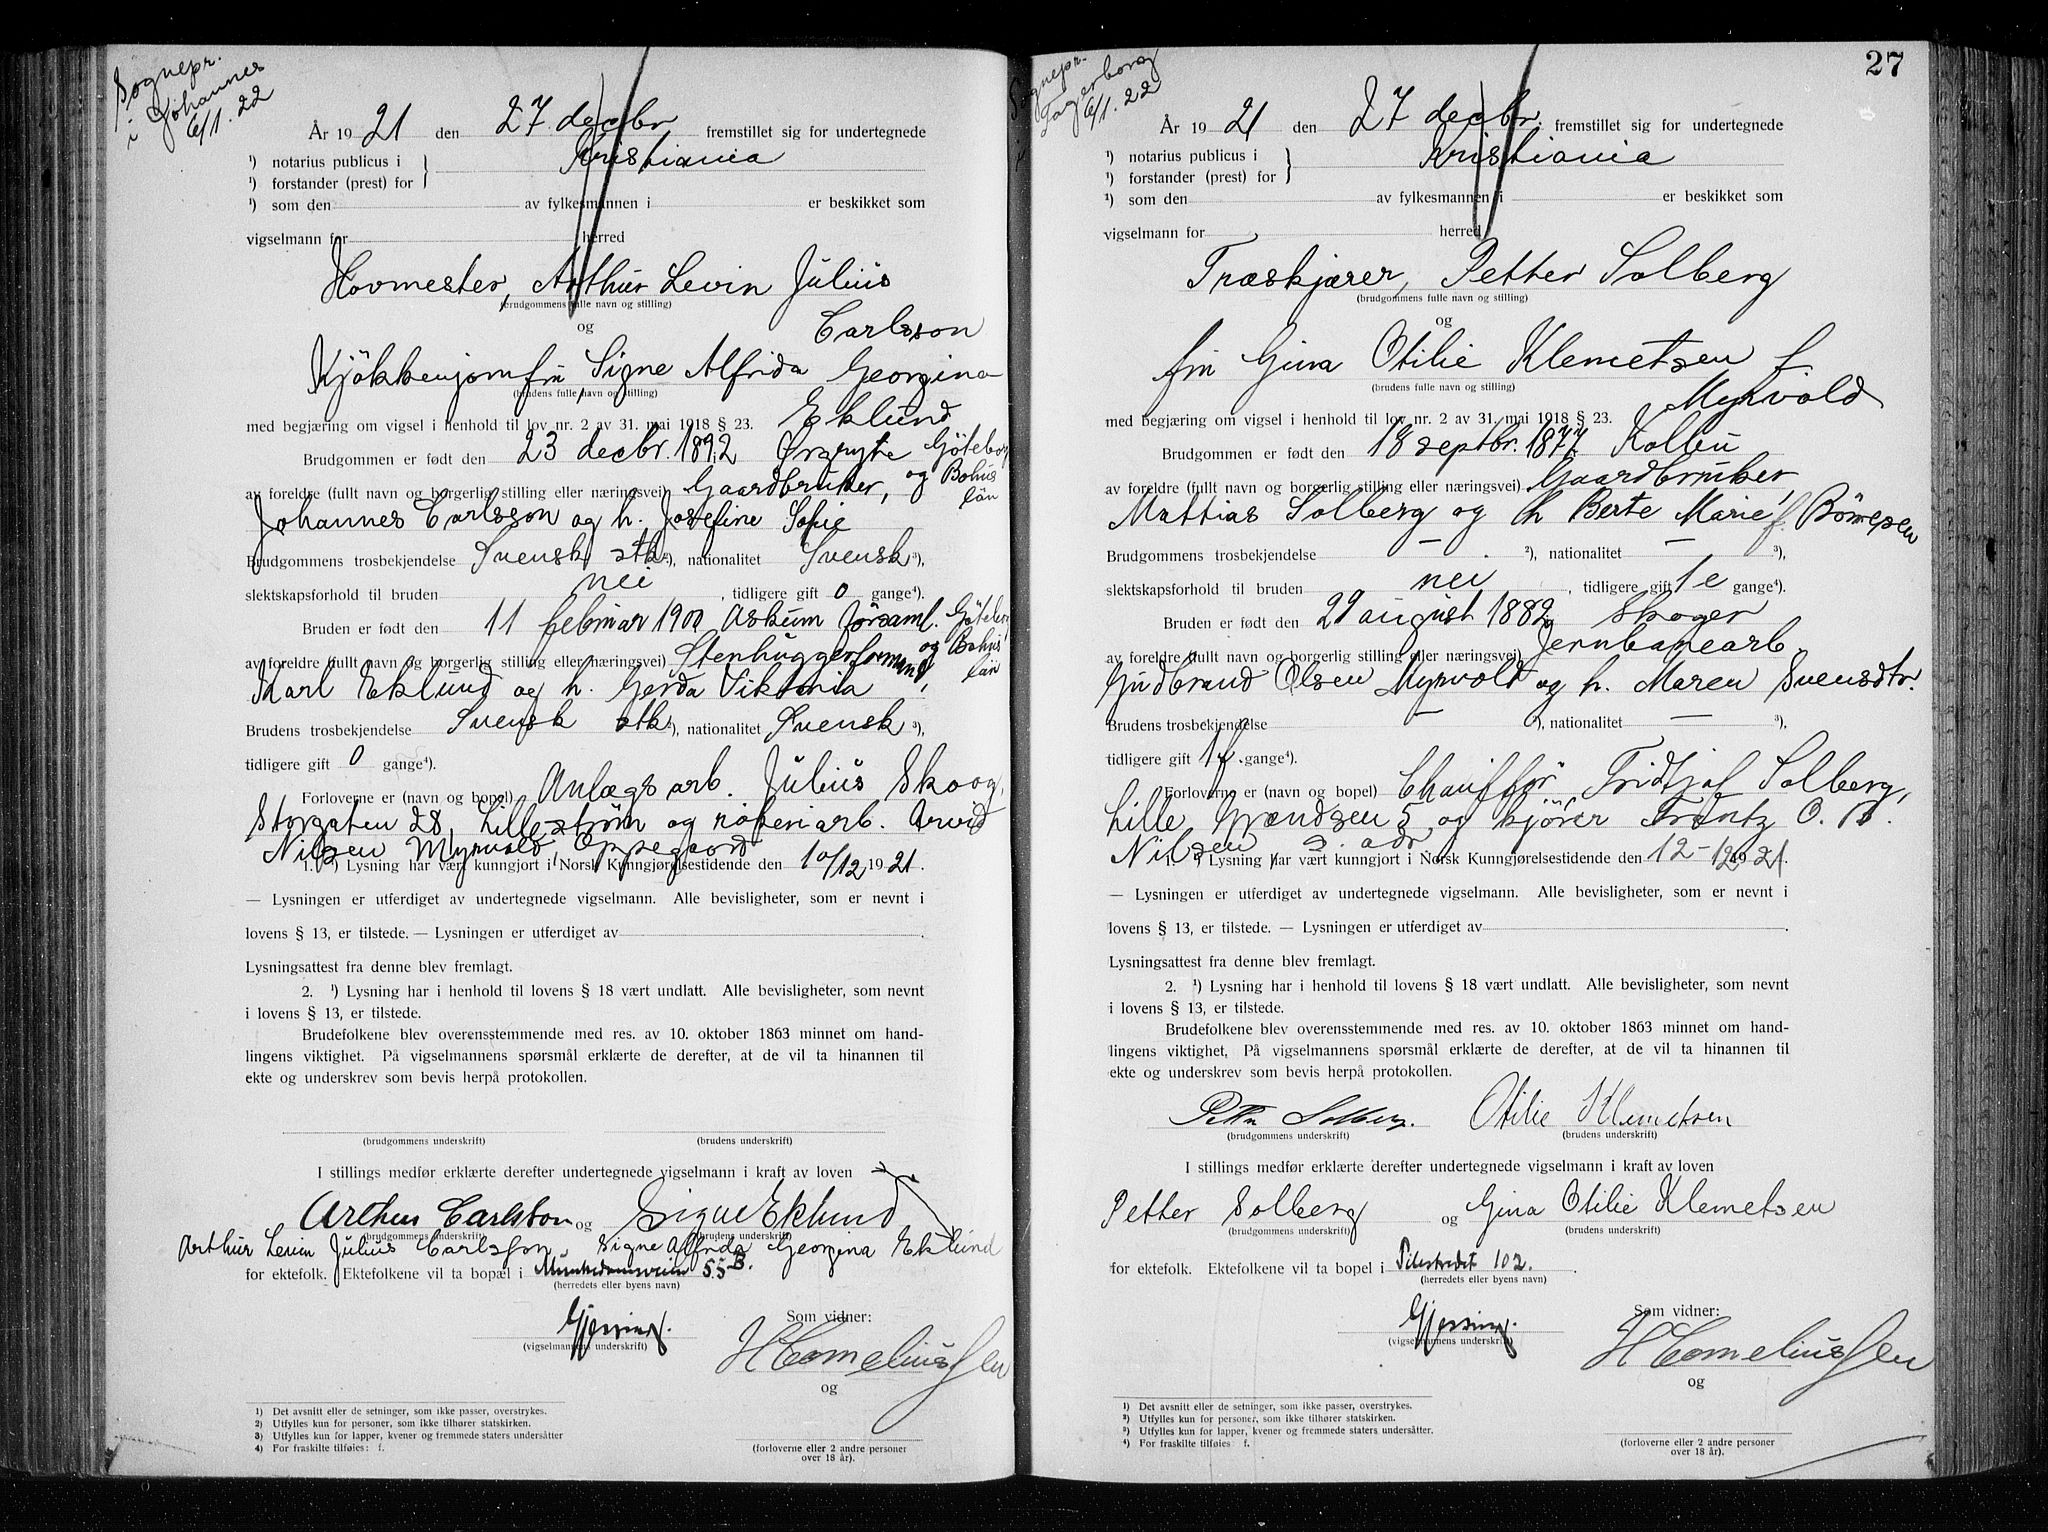 Sognepr.
i Johannes
6/1.22
År 1921 den 27 decbr fremstillet sig for undertegnede
¹) notarius publicus i Kristiania
¹) forstander (prest) for
¹) som den av fylkesmannen i er beskikket som
vigselmann for herred
Hovmester, Arthur Levin Julius
(brudgommens fulle navn og stilling)
og Carlsson
Kjökkenjomfru Signe Alfrida Georgina
(brudens fulle navn og stilling)
Eklund
med begjæring om vigsel i henhold til lov nr. 2 av 31. mai 1918 § 23.
Brudgommen er født den 23 decbr. 1892 Ørgryte Göteborg
og Bohus
län
av foreldre (fullt navn og borgerlig stilling eller næringsvei) Gaardbruker,
Johannes Carlsson og h. Josefine Sofie
Brudgommens trosbekjendelse Svensk stk ²), nationalitet Svensk ³),
slektskapsforhold til bruden nei, tidligere gift 0 gange⁴).
Bruden er født den 11 februar 1900 Askum församl. Göteborg
og Bohus
län
av foreldre (fullt navn og borgerlig stilling eller næringsvei) Stenhuggerformand,
Karl Eklund og h. Gerda Viktoria
Brudens trosbekjendelse Svensk stk ²), nationalitet Svensk ³),
tidligere gift 0 gange⁴).
Forloverne er (navn og bopel) Anlægsarb. Julius Skoog,
Storgaten 28, Lillestrøm og arb. Arvid
Nilsen Myrvold, Oppegaard
1. ¹) Lysning har vært kunngjort i Norsk Kunngjørelsestidende den 10/12 1921.
— Lysningen er utferdiget av undertegnede vigselmann. Alle bevisligheter, som er nevnt i
lovens § 13, er tilstede. — Lysningen er utferdiget av .
Lysningsattest fra denne blev fremlagt.
2. ¹) Lysning har i henhold til lovens § 18 vært undlatt. Alle bevisligheter, som nevnt
i lovens § 13, er tilstede.
Brudefolkene blev overensstemmende med res. av 10. oktober 1863 minnet om hand-
lingens viktighet. På vigselmannens spørsmål erklærte de derefter, at de vil ta hinannen til
ekte og underskrev som bevis herpå protokollen.
(brudgommens underskrift) (brudens underskrift)
I stillings medfør erklærte derefter undertegnede vigselmann i kraft av loven
Arthur Carlsson og Signe Eklund
(brudgommens underskrift) (brudens underskrift)
Arthur Levin Julius Carlsson Signe Alfrida Georgina Eklund
for ektefolk. Ektefolkene vil ta bopæl i Munkedamsveien 55 B.
(herredets eller byens navn)
Gjessing.
(vigselmannens underskrift)
Som vidner:
H Corneliussen
og
(forloverne eller 2 andre personer
over 18 år).
1) Det avsnitt eller de setninger, som ikke passer, overstrykes.
2) Utfylles kun for personer, som ikke tilhører statskirken.
3) Utfylles kun for lapper, kvener og fremmede staters undersåtter
4) For fraskilte tilføies: f.
27
Sognepr.
i Fagerborg
6/1.22
År 1921 den 27 decbr. fremstillet sig for undertegnede
¹) notarius publicus i Kristiania
¹) forstander (prest) for
¹) som den av fylkesmannen i er beskikket som
vigselmann for herred
Træskjærer, Petter Solberg
(brudgommens fulle navn og stilling)
og
fru Gina Otilie Klemetsen f.
(brudens fulle navn og stilling)
Myrvold
med begjæring om vigsel i henhold til lov nr. 2 av 31. mai 1918 § 23.
Brudgommen er født den 18 septbr. 1877. Kolbu
av foreldre (fullt navn og borgerlig stilling eller næringsvei) Gaardbruker,
Mattias Solberg og h Berte Marie f.
Brudgommens trosbekjendelse — ²), nationalitet — ³),
slektskapsforhold til bruden nei, tidligere gift 1 e gange⁴).
Bruden er født den 29 august 1882 Skoger
av foreldre (fullt navn og borgerlig stilling eller næringsvei) Jernbanearb.
Gudbrand Olsen Myrvold og h. Maren Svensdtr.
Brudens trosbekjendelse — ²), nationalitet — ³),
tidligere gift 1 f. gange⁴).
Forloverne er (navn og bopel) Chauffør Fridtjof Solberg,
Lille Grændsen 5, og kjører Frantz O. B.
Nilsen s. adr.
1. ¹) Lysning har vært kunngjort i Norsk Kunngjørelsestidende den 12-12 1921.
— Lysningen er utferdiget av undertegnede vigselmann. Alle bevisligheter, som er nevnt i
lovens § 13, er tilstede. — Lysningen er utferdiget av .
Lysningsattest fra denne blev fremlagt.
2. ¹) Lysning har i henhold til lovens § 18 vært undlatt. Alle bevisligheter, som nevnt
i lovens § 13, er tilstede.
Brudefolkene blev overensstemmende med res. av 10. oktober 1863 minnet om hand-
lingens viktighet. På vigselmannens spørsmål erklærte de derefter, at de vil ta hinannen til
ekte og underskrev som bevis herpå protokollen.
Petter Solberg. Otilie Klemetsen
(brudgommens underskrift) (brudens underskrift)
I stillings medfør erklærte derefter undertegnede vigselmann i kraft av loven
Petter Solberg og Gina Otilie Klemetsen
(brudgommens underskrift) (brudens underskrift)
for ektefolk. Ektefolkene vil ta bopel i Pilestredet 102.
(herredets eller byens navn)
Gjessing.
(vigselmannens underskrift)
Som vidner:
H Corneliussen
og
(forloverne eller 2 andre personer
over 18 år).
¹) Det avsnitt eller de setninger, som ikke passer, overstrykes.
²) Utfylles kun for personer, som ikke tilhører statskirken.
³) Utfylles kun for lapper, kvener og fremmede staters undersåtter.
⁴) For fraskilte tilføies f.